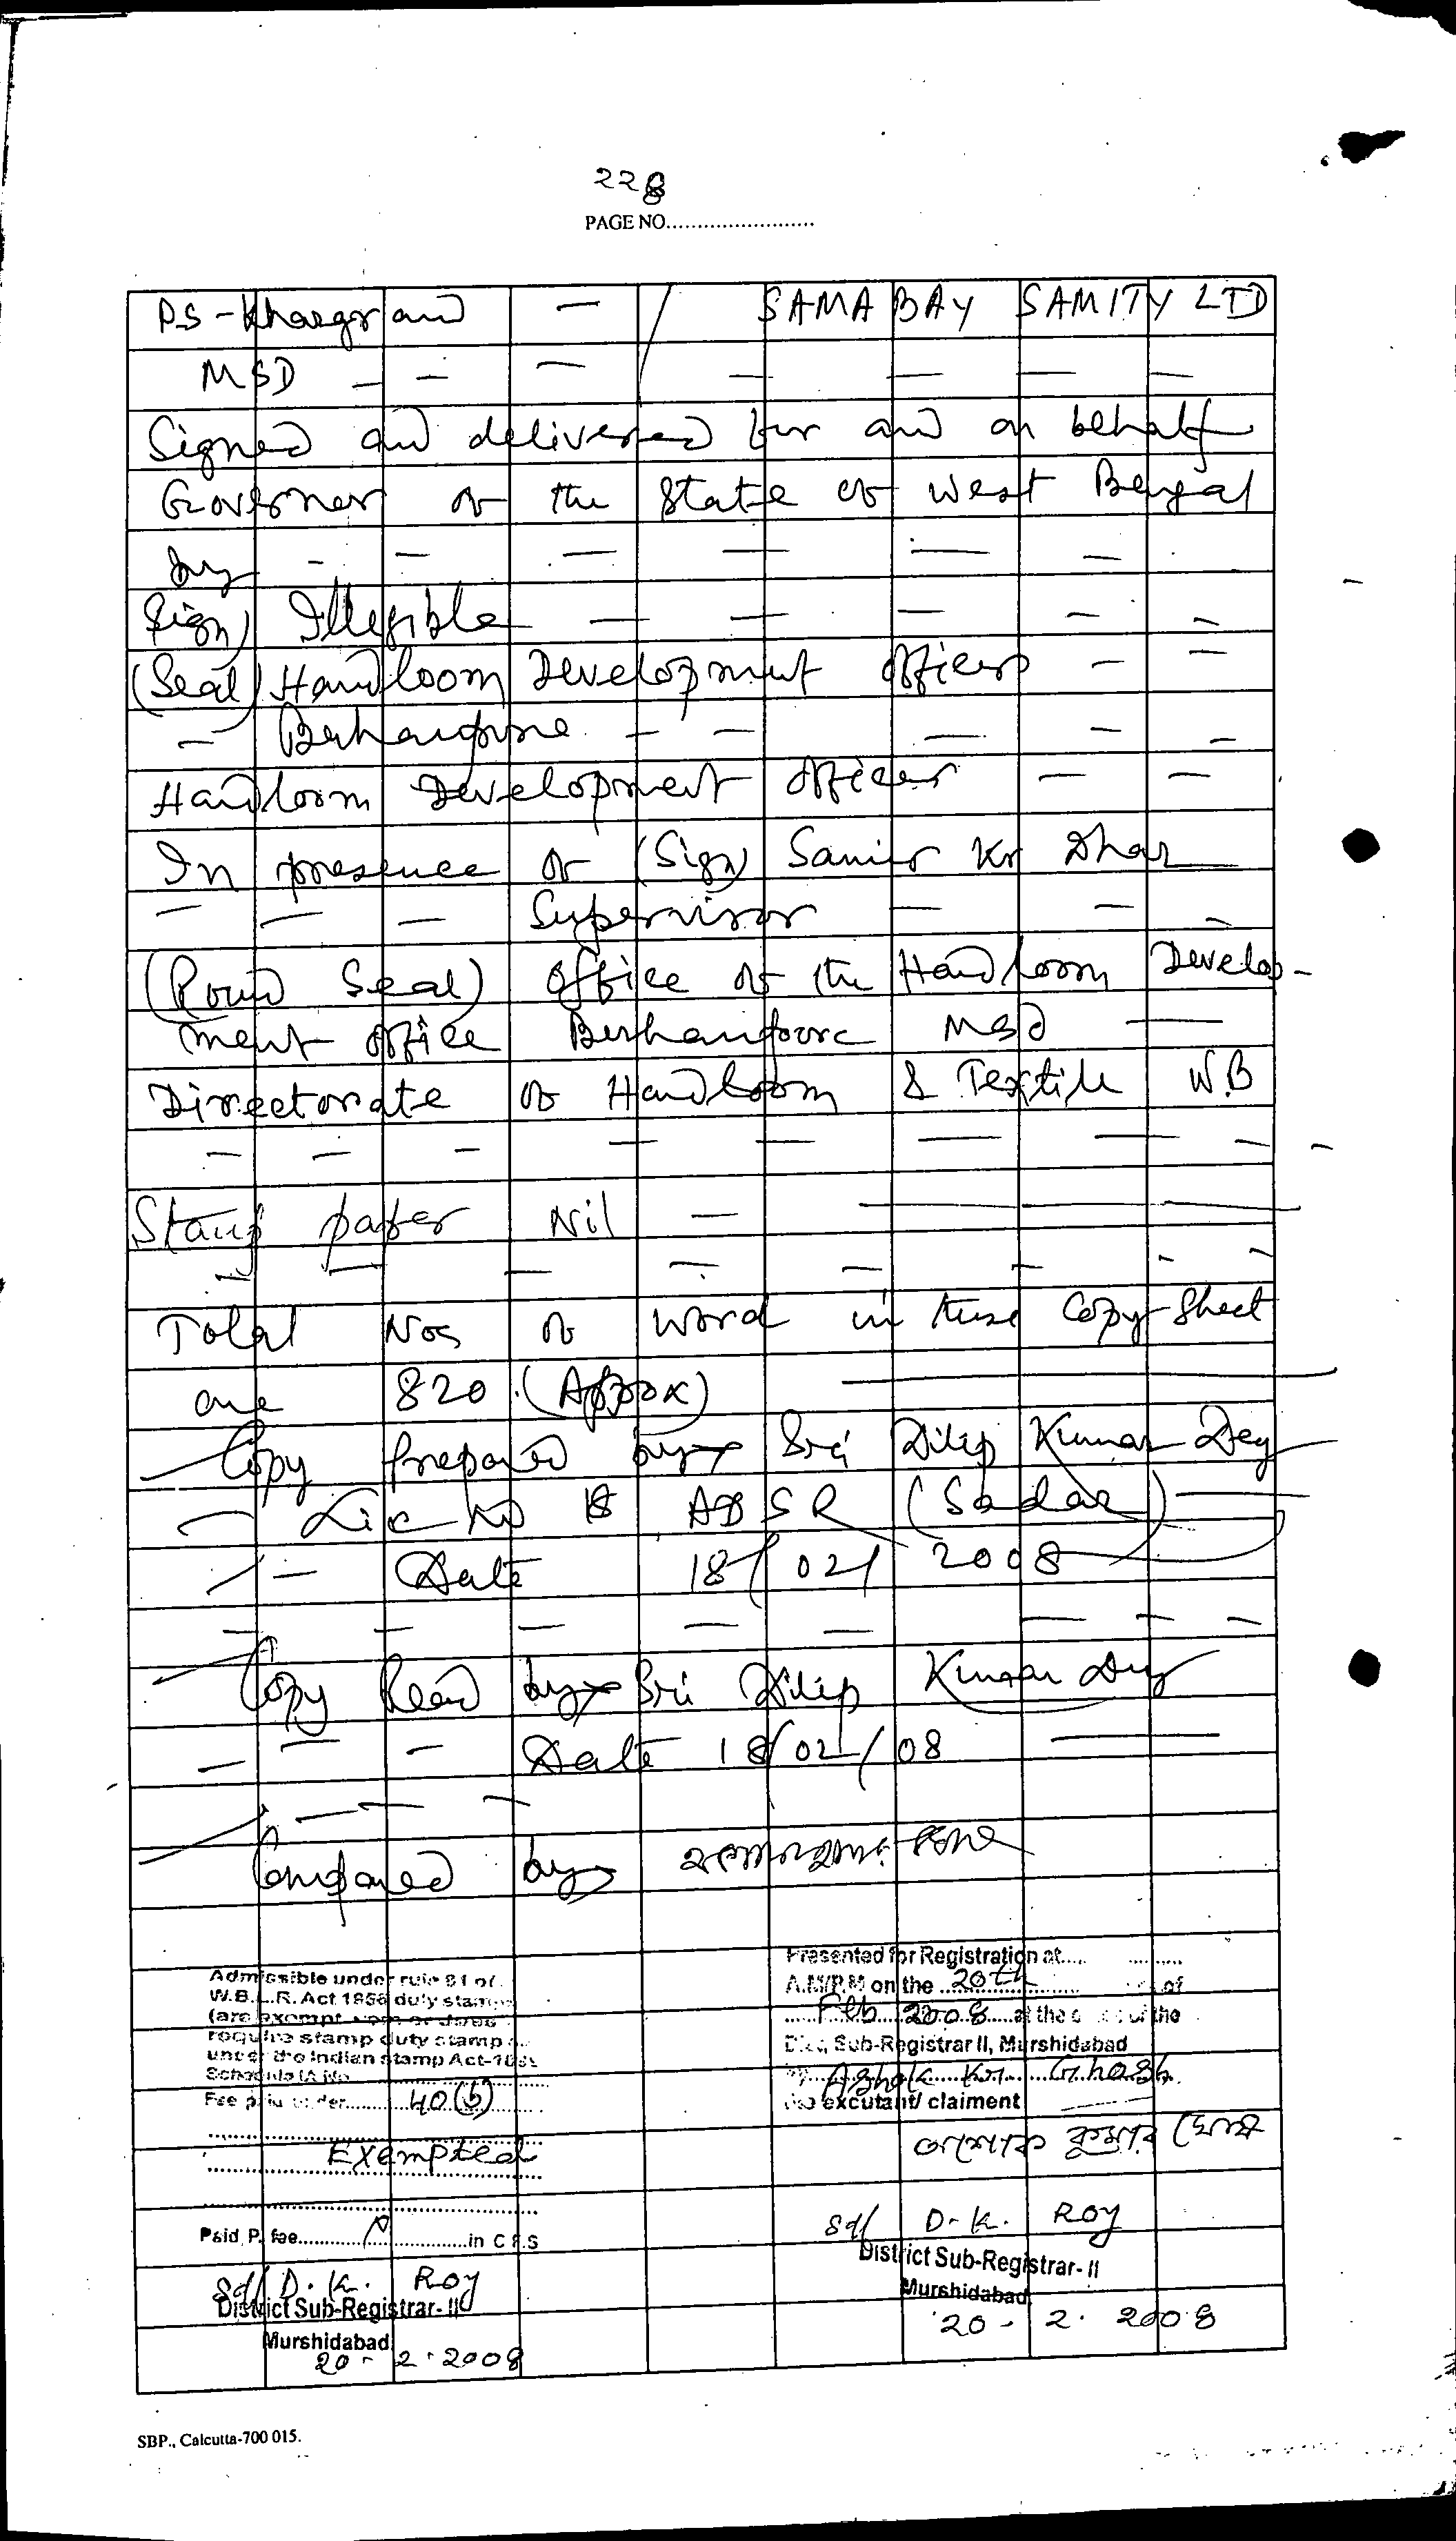 228
PAGE NO..........................
P.S - Khargram — / SAMABAY SAMITY LTD
MSD — — — — — — —
Signed and delivered for and on behalf
Governor of the State of West Bengal
by - — — — — —
Sign) Illegible — — — — —
(Seal) Handloom Development officer — —
— Berhampore — — — — —
Handloom Development officer — —
In presence of (Sign) Samir Kr Dhar
— — — Supervisor — — —
(Round Seal) office of the Handloom Develop-
ment office Berhampore MSD —
Directorate of Handloom & Textile W.B
— — — — — — — —
Stamp paper Nil —
Total Nos of word in these Copy Sheet
are 820 (Approx)
Copy prepared by Sri Dilip Kumar Dey
— Lic No 18 ADSR (Sadar)
— Date 18/02/2008
Copy Read by Sri Dilip Kumar Dey
— — — Date 18/02/08
Compared by
Admissible under rule 21 of
W.B.L.R. Act 1956 duly stamp
(are exempt
require stamp duty stamp
under the Indian stamp Act-18
Schedule IA No
Fee paid under..........40(b)
Exempted
Paid P. fee....................in C F.S
Sd/ D. K. Roy
District Sub-Registrar- II
Murshidabad
20 - 2 . 2008
Presented for Registration at.....
A.M/P.M on the 20th of
Feb 2008 at the of the
Dist, Sub-Registrar II, Murshidabad
by Ashok Kr. Ghosh.
the excutant/ claiment
অশোক কুমার ঘোষ
Sd/ D. K. Roy
District Sub-Registrar- II
Murshidabad
20 - 2 . 2008
SBP., Calcutta-700 015.